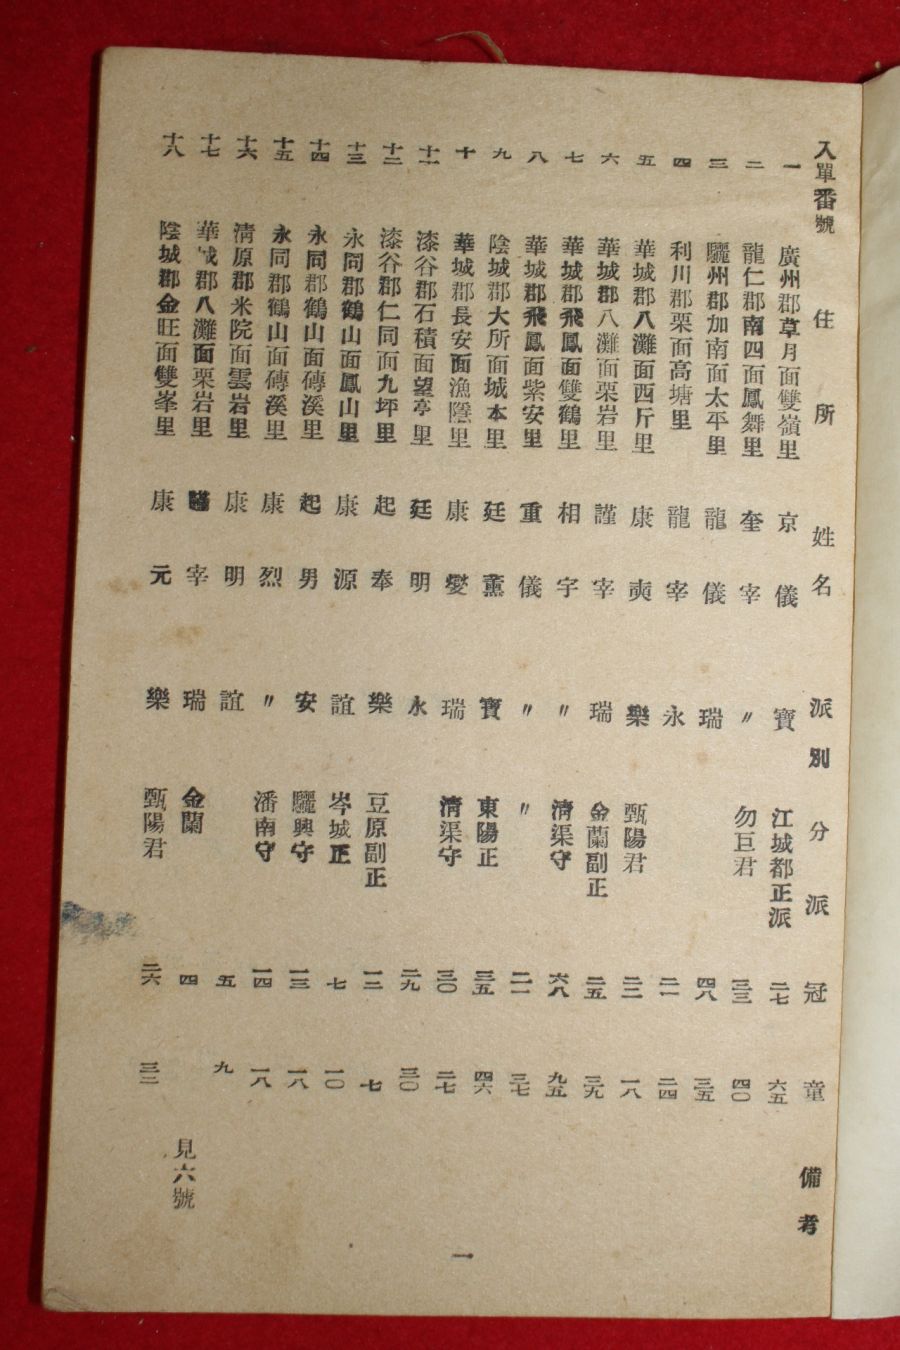 入單番號 住所 姓名 派別 分派 冠 童 備考
一 廣州郡草月面雙嶺里 京儀 寶 江城都正派 二七 六五
二 龍仁郡南四面鳳舞里 奎宰 〃 勿巨君 三三 四〇
三 驪州郡加南面太平里 龍儀 瑞 四八 三五
四 利川郡栗面高塘里 龍宰 永 二一 二四
五 華城郡八灘面西斤里 康奭 樂 甄陽君 二三 一八
六 華城郡八灘面栗岩里 謹宰 瑞 金蘭副正 二五 三九
七 華城郡飛鳳面雙鶴里 相宇 〃 淸渠守 六八 九五
八 華城郡飛鳳面紫安里 重儀 〃 〃 二一 三七
九 陰城郡大所面城本里 廷薰 寶 東陽正 三五 四六
十 華城郡長安面漁隱里 康燮 瑞 淸渠守 三〇 二七
十一 漆谷郡石積面望亭里 廷明 永 二九 三〇
十二 漆谷郡仁同面九坪里 起奉 樂 豆原副正 一二 七
十三 永同郡鶴山面鳳山里 康源 誼 岑城正 七 一〇
十四 永同郡鶴山面磚溪里 起男 安 驪興守 一三 一八
十五 永同郡鶴山面磚溪里 康烈 〃 潘南守 一四 一八
十六 淸原郡米院面雲岩里 康明 誼 五 九
十七 華城郡八灘面栗岩里 謹宰 瑞 金蘭 四 見六號
十八 陰城郡金旺面雙峯里 康元 樂 甄陽君 二六 三二
一